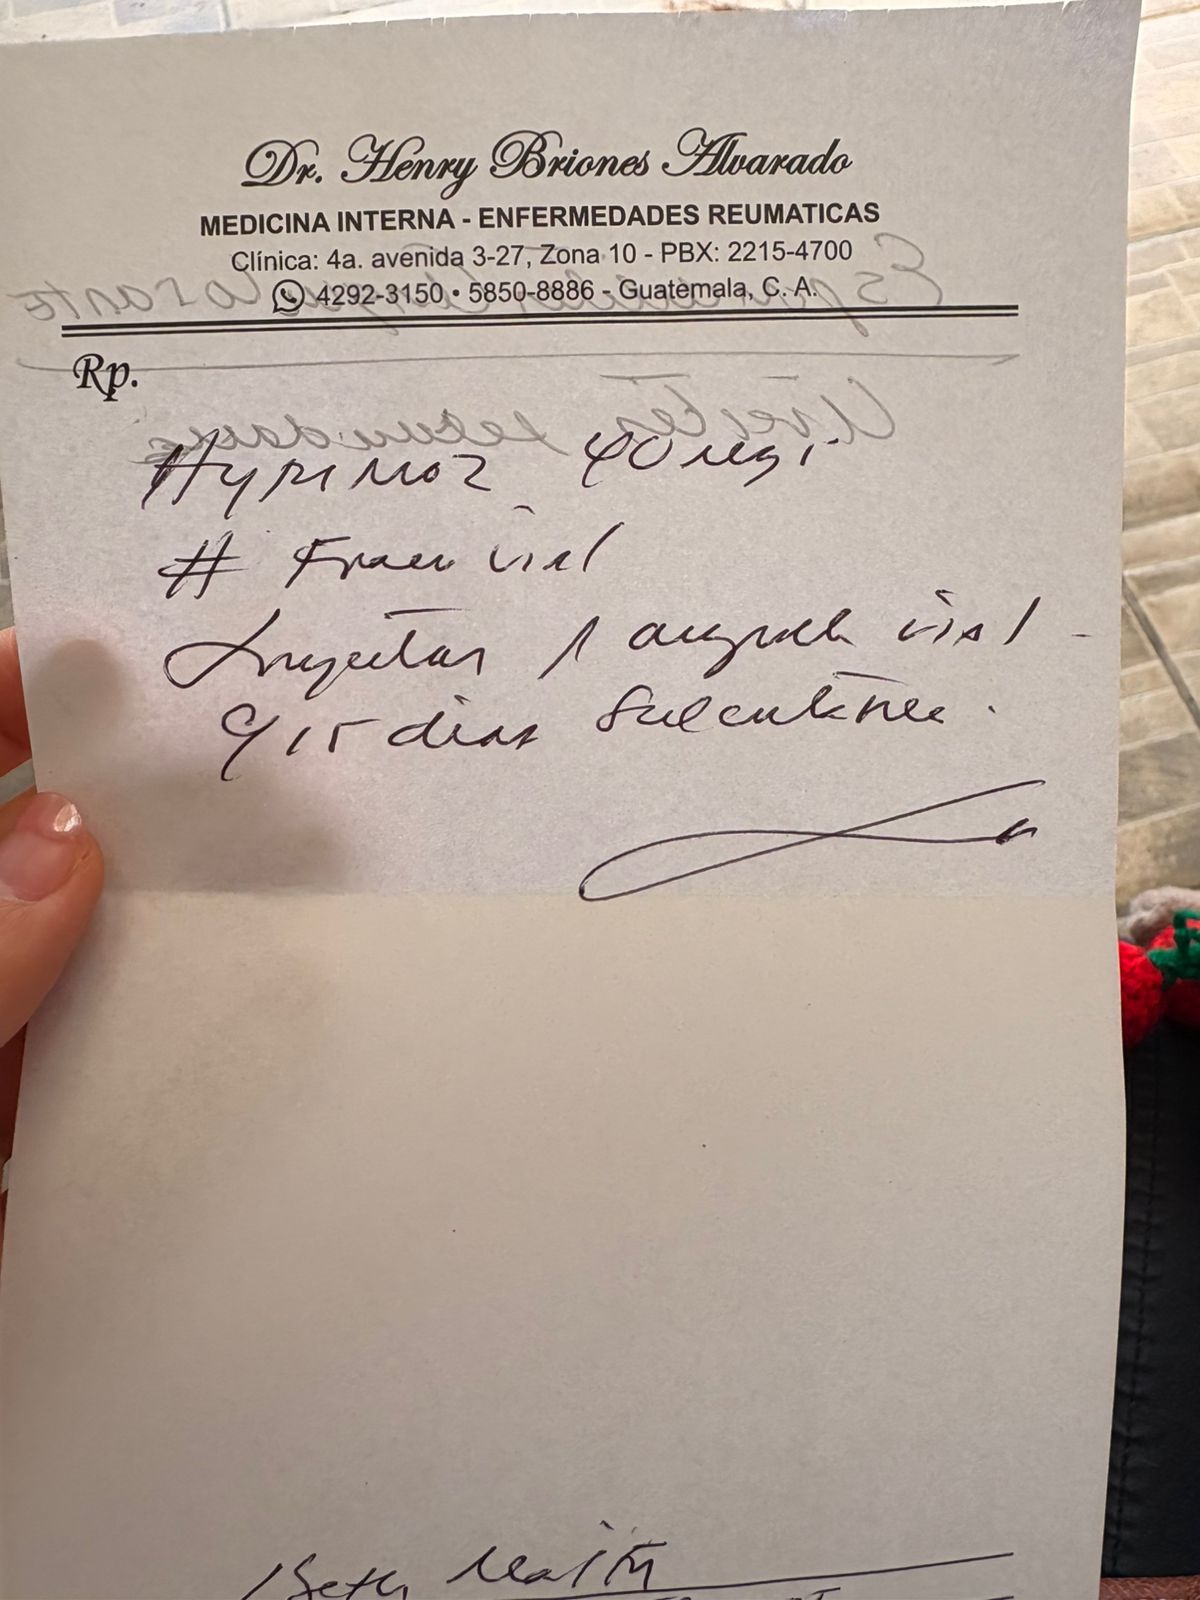 Dr. Henry Briones Alvarado
MEDICINA INTERNA - ENFERMEDADES REUMATICAS
Clínica: 4a. avenida 3-27, Zona 10 - PBX: 2215-4700
4292-3150 • 5850-8886 - Guatemala, C. A.
Rp.
Hyrimoz 40 mg
# Frasco vial
Inyectar 1 vial
c/ 15 dias Subcutánea.